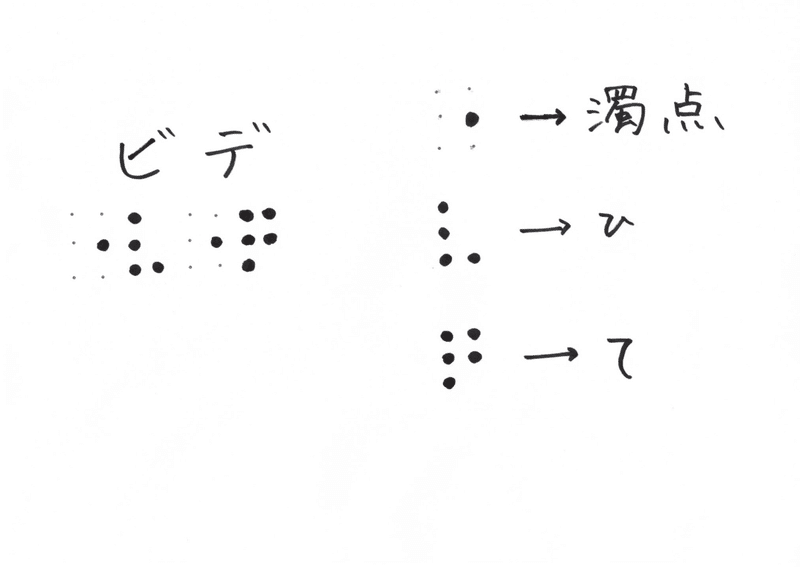 ビデ
⠐⠧⠐⠟
⠐→濁点
⠧→ひ
⠟→て